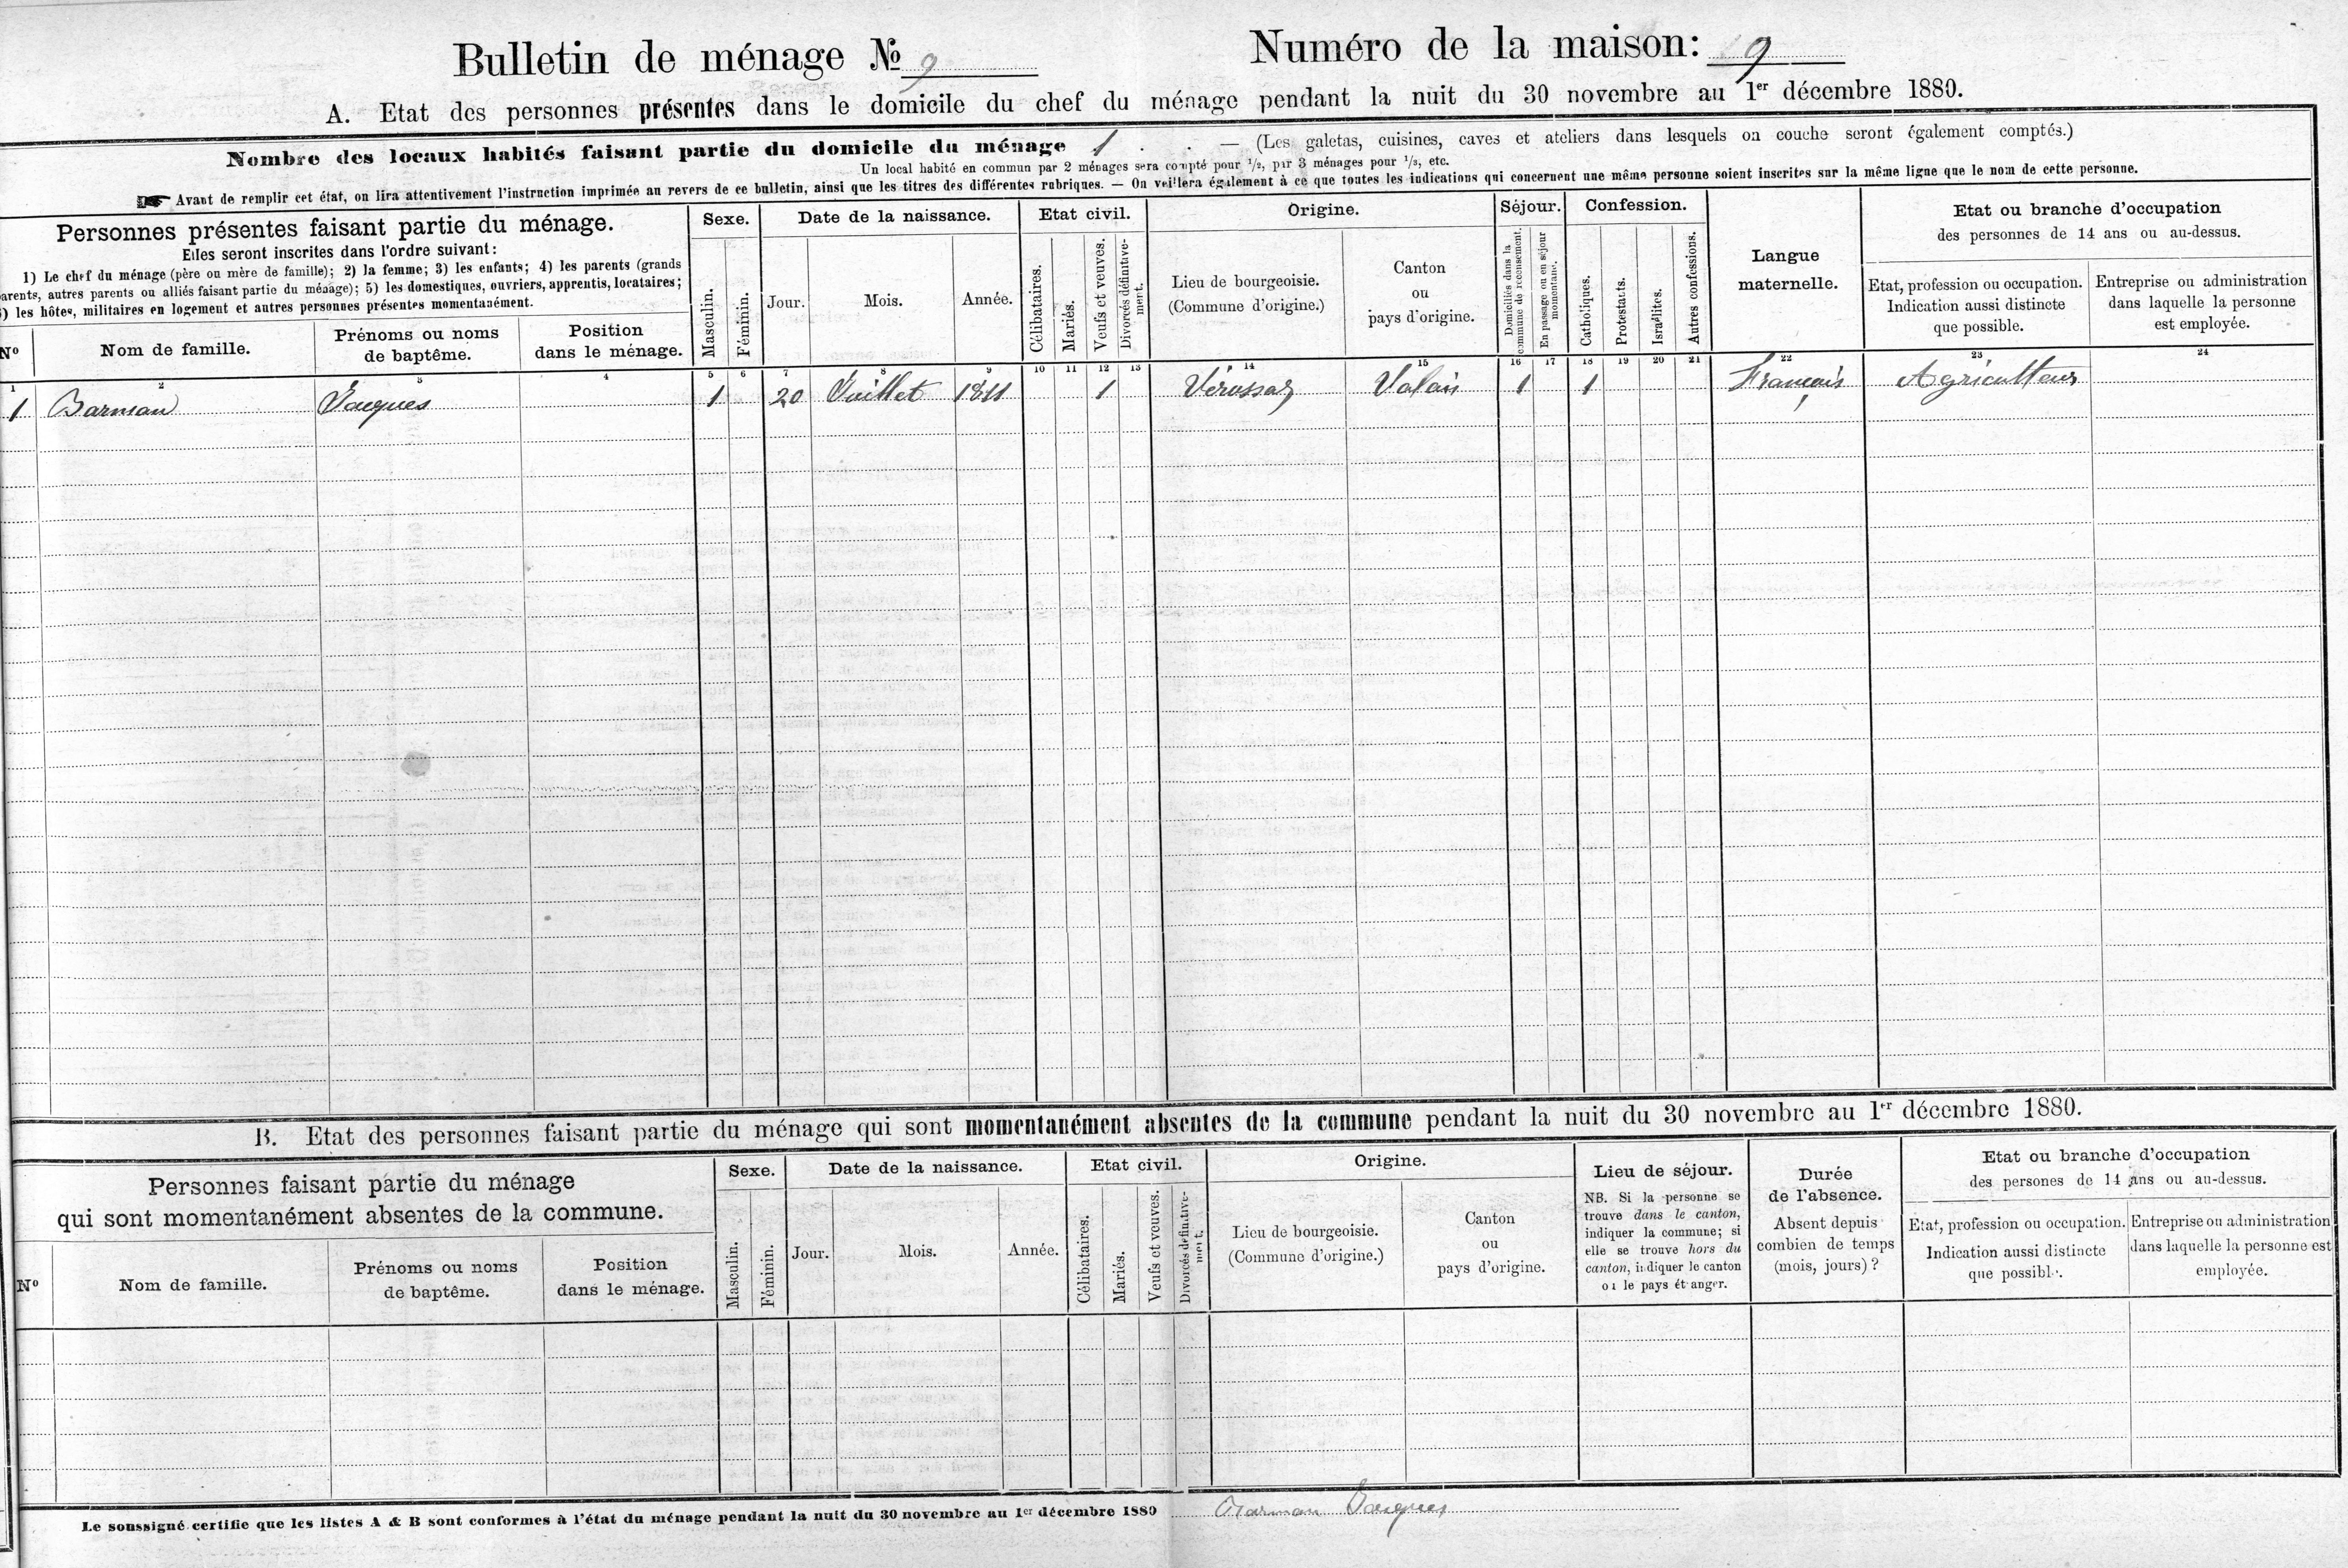 Bulletin de ménage № 9
Numéro de la maison: 9
A. Etat des personnes présentes dans le domicile du chef du ménage pendant la nuit du 30 novembre au 1er décembre 1880.
Nombre des locaux habités faisant partie du domicile du ménage 1 . . — (Les galetas, cuisines, caves et ateliers dans lesquels on couche seront également comptés.)
Un local habité en commun par 2 ménages sera compté pour 1/2, par 3 ménages pour 1/3, etc.
☛ Avant de remplir cet état, on lira attentivement l'instruction imprimée au revers de ce bulletin, ainsi que les titres des différentes rubriques. — On veillera également à ce que toutes les indications qui concernent une même personne soient inscrites sur la même ligne que le nom de cette personne.
Personnes présentes faisant partie du ménage.
Elles seront inscrites dans l'ordre suivant:
1) Le chef du ménage (père ou mère de famille); 2) la femme; 3) les enfants; 4) les parents (grands
arents, autres parents ou alliés faisant partie du ménage); 5) les domestiques, ouvriers, apprentis, locataires;
) les hôtes, militaires en logement et autres personnes présentes momentanément.
Nº
Nom de famille.
Prénoms ou noms
de baptême.
Position
dans le ménage.
Sexe.
Masculin.
Féminin.
Date de la naissance.
Jour.
Mois.
Année.
Etat civil.
Célibataires.
Mariés.
Veufs et veuves.
Divorcés définitive-
ment.
Origine.
Lieu de bourgeoisie.
(Commune d'origine.)
Canton
ou
pays d'origine.
Séjour.
Domiciliés dans la
commune de recensement.
En passage ou en séjour
momentané.
Confession.
Catholiques.
Protestants.
Israélites.
Autres confessions.
Langue
maternelle.
Etat ou branche d'occupation
des personnes de 14 ans ou au-dessus.
Etat, profession ou occupation.
Indication aussi distincte
que possible.
Entreprise ou administration
dans laquelle la personne
est employée.
1 2 3 4 5 6 7 8 9 10 11 12 13 14 15 16 17 18 19 20 21 22 23 24
1 Barman Jacques 1 20 Juillet 1811 1 Vérossaz Valais 1 1 Français Agriculteur
B. Etat des personnes faisant partie du ménage qui sont momentanément absentes de la commune pendant la nuit du 30 novembre au 1er décembre 1880.
Personnes faisant partie du ménage
qui sont momentanément absentes de la commune.
Nº
Nom de famille.
Prénoms ou noms
de baptême.
Position
dans le ménage.
Sexe.
Masculin.
Féminin.
Date de la naissance.
Jour.
Mois.
Année.
Etat civil.
Célibataires.
Mariés.
Veufs et veuves.
Divorcés définitive-
ment.
Origine.
Lieu de bourgeoisie.
(Commune d'origine.)
Canton
ou
pays d'origine.
Lieu de séjour.
NB. Si la personne se
trouve dans le canton,
indiquer la commune; si
elle se trouve hors du
canton, indiquer le canton
ou le pays étranger.
Durée
de l'absence.
Absent depuis
combien de temps
(mois, jours) ?
Etat ou branche d'occupation
des persones de 14 ans ou au-dessus.
Etat, profession ou occupation.
Indication aussi distincte
que possible.
Entreprise ou administration
dans laquelle la personne est
employée.
Le soussigné certifie que les listes A & B sont conformes à l'état du ménage pendant la nuit du 30 novembre au 1er décembre 1880 Barman Jacques